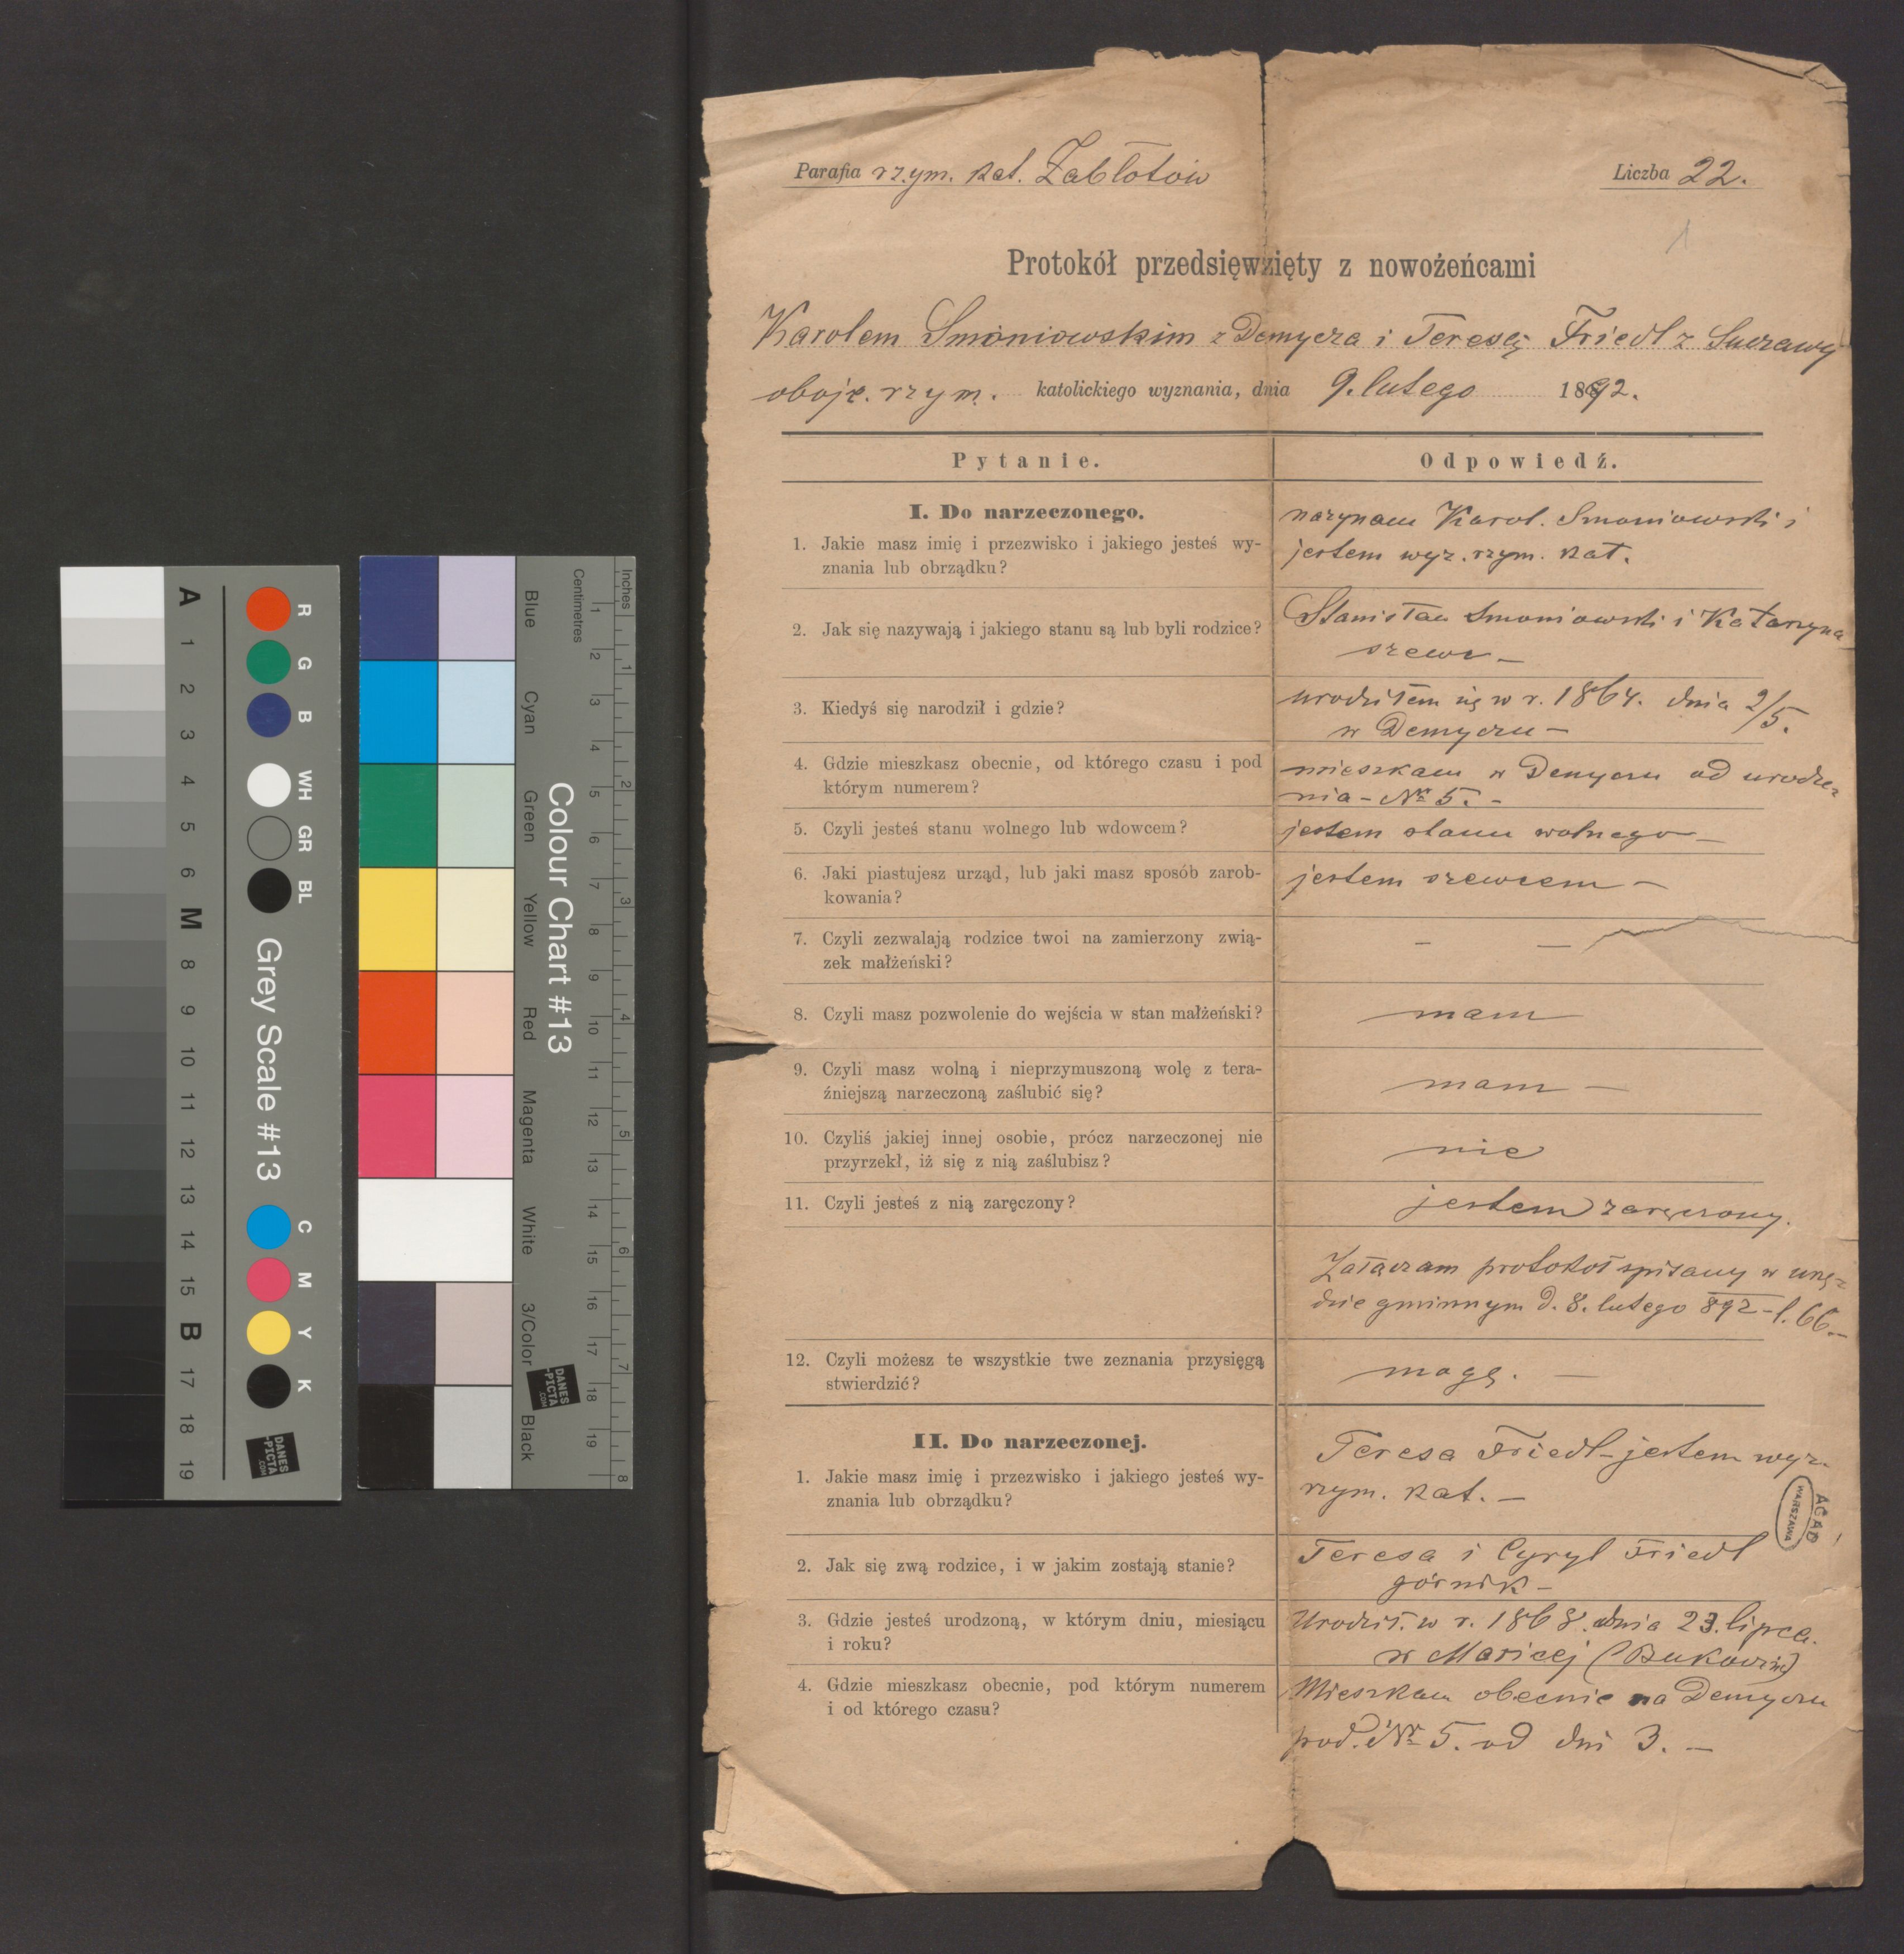 Parafia rzym. kat. Zabłotów
Liczba 22.
1
Protokół przedsięwzięty z nowożeńcami
Karolem Smoniowskim z Demycza i Teresą Friedl z Suczawy
obojg. rzym. katolickiego wyznania, dnia 9. lutego 1892.
Pytanie. Odpowiedź.
I. Do narzeczonego.
1. Jakie masz imię i przezwisko i jakiego jesteś wy-
znania lub obrządku?
nazywam Karol. Smoniowski i
jestem wyz. rzym. kat.
2. Jak się nazywają i jakiego stanu są lub byli rodzice?
Stanisław Smoniowski i Katarzyna
szewc —
3. Kiedyś się narodził i gdzie?
urodziłem się w r. 1864. dnia 2/5.
w Demyczu —
4. Gdzie mieszkasz obecnie, od którego czasu i pod
którym numerem?
mieszkam w Demyczu od urodze-
nia — Nr 5. —
5. Czyli jesteś stanu wolnego lub wdowcem?
jestem stanu wolnego —
6. Jaki piastujesz urząd, lub jaki masz sposób zarob-
kowania?
jestem szewcem —
7. Czyli zezwalają rodzice twoi na zamierzony zwią-
zek małżeński?
— —
8. Czyli masz pozwolenie do wejścia w stan małżeński?
mam
9. Czyli masz wolną i nieprzymuszoną wolę z tera-
źniejszą narzeczoną zaślubić się?
mam —
10. Czyliś jakiej innej osobie, prócz narzeczonej nie
przyrzekł, iż się z nią zaślubisz?
nie
11. Czyli jesteś z nią zaręczony?
jestem zaręczony.
Załączam protokół spisany w urzę-
dzie gminnym d. 8. lutego 892 — l. 66. —
12. Czyli możesz te wszystkie twe zeznania przysięgą
stwierdzić?
mogę. —
II. Do narzeczonej.
1. Jakie masz imię i przezwisko i jakiego jesteś wy-
znania lub obrządku?
Teresa Friedl — jestem wyz.
rzym. kat. —
2. Jak się zwą rodzice, i w jakim zostają stanie?
Teresa i Cyryl Friedl
górnik —
3. Gdzie jesteś urodzoną, w którym dniu, miesiącu
i roku?
Urodził. w r. 1868. dnia 23. lipca.
w Maricej (Bukowin)
4. Gdzie mieszkasz obecnie, pod którym numerem
i od którego czasu?
Mieszkam obecnie na Demyczu
pod. Nr 5. od dni 3. —
AGAD
WARSZAWA
A 1 2 3 4 5 6 M 8 9 10 11 12 13 14 15 B 17 18 19
R G B WH GR BL
Grey Scale #13
C M Y K
DANES
-PICTA
.COM
Colour Chart #13
Blue Cyan Green Yellow Red Magenta White 3/Color Black
Centimetres
1 2 3 4 5 6 7 8 9 10 11 12 13 14 15 16 17 18 19
Inches
1 2 3 4 5 6 7 8
DANES
-PICTA
.COM